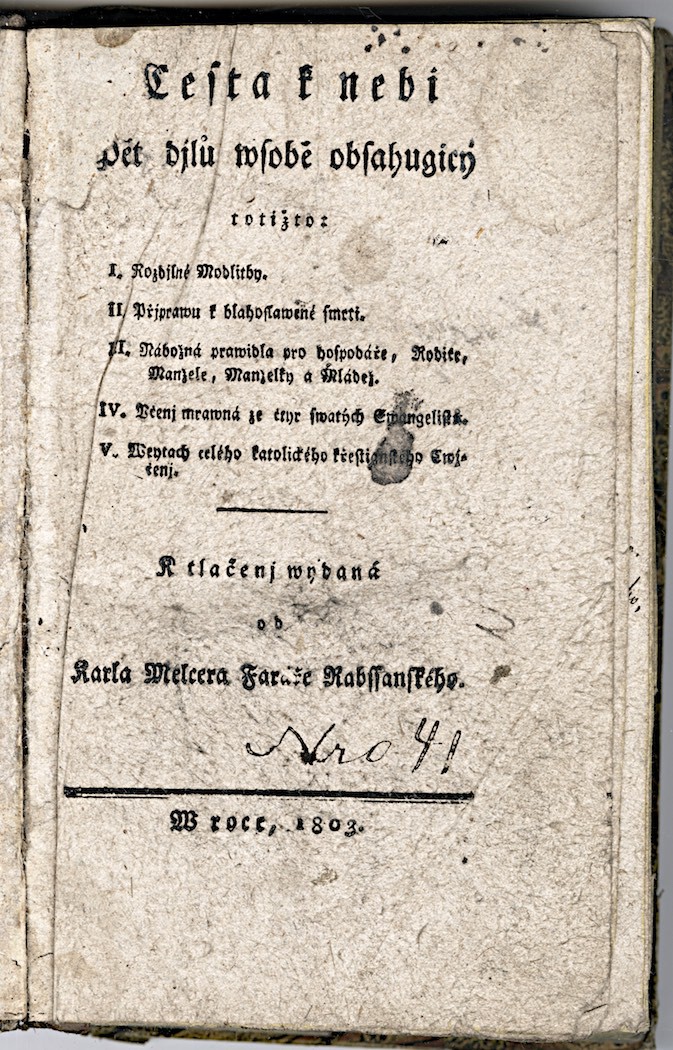 Ceſta k nebi
Pět djlů wſobě obſahugicý
totižto:
I. Rozdjlné Modlitby.
II. Přjprawu k blahoſlawené ſmrti.
III. Nábožná prawidla pro hoſpodáře, Rodiče,
Manžele, Manželky a Mládež.
IV. Včenj mrawná ze čtyr ſwatých Ewangeliſtů.
V. Weytach celého katolického křeſtianſkého Cwi-
čenj.
K tlačenj wydaná
od
Karla Melcera Faráře Rabſſanſkého.
Nro 41
W roce, 1803.